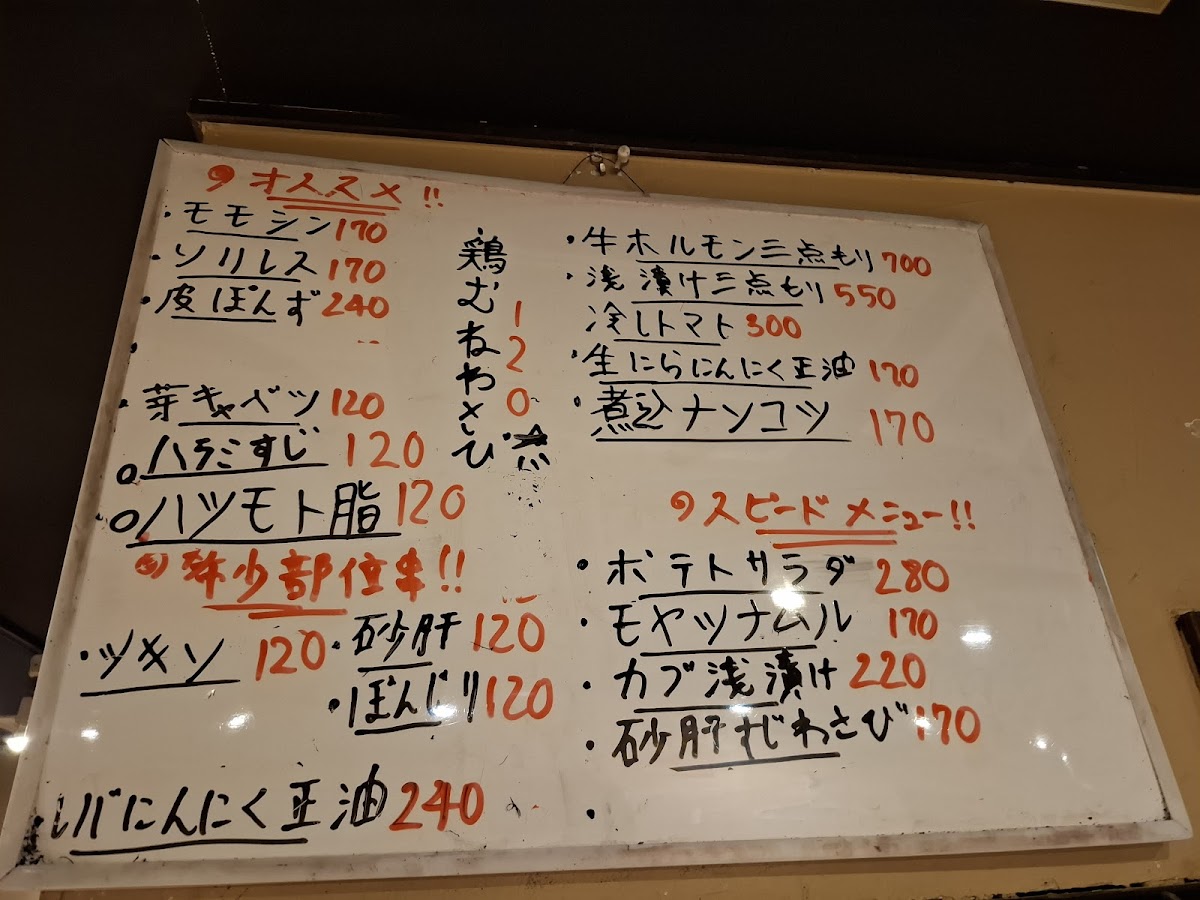 オススメ!!
・モモシン170
・ソリレス170
・皮ぽんず240
・芽キャベツ120
○ハラミすじ120
○ハツモト脂120
希少部位串!!
・ツキソ120
・砂肝120
・ぽんじり120
・レバにんにく正油240
鶏むねわさび
120
・牛ホルモン三点もり700
・浅漬け三点もり550
冷しトマト300
・生にらにんにく正油170
・煮込ナンコツ170
スピードメニュー!!
・ポテトサラダ280
・モヤシナムル170
・カブ浅漬け220
・砂肝すじわさび170
・